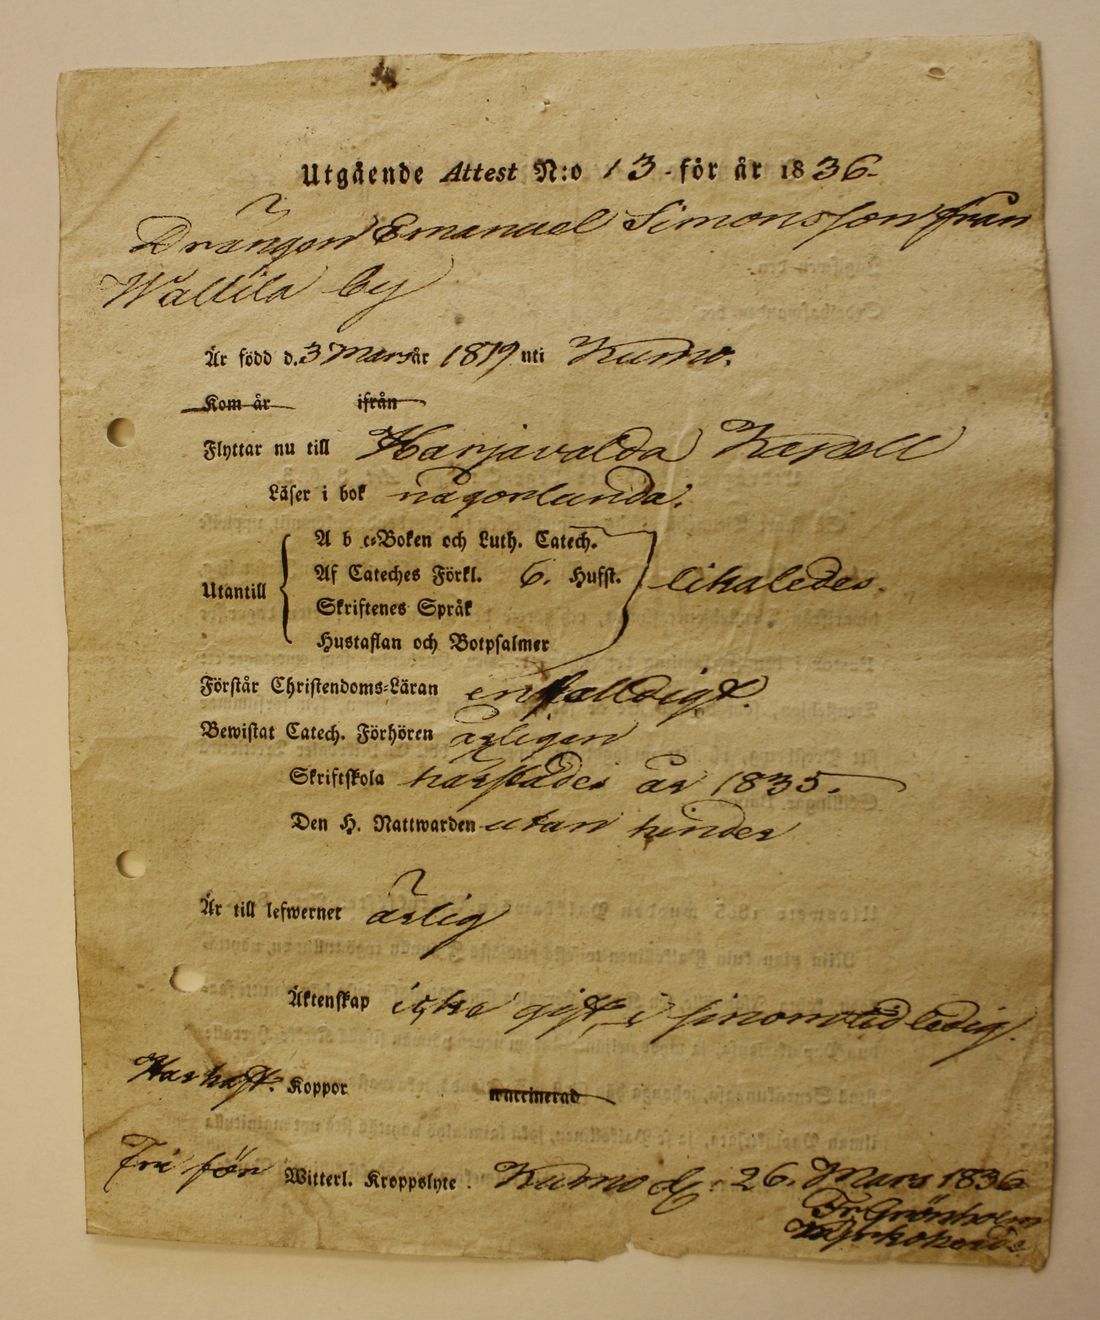 Utgående Attest N:o 13 för år 1836
Drängen Emanuel Simonsson från
Wallila by
Är född d. 3 Mars år 1819 uti Kumo.
Kom år ifrån
Flyttar nu till Harjavalda Kapell
Läser i bok någorlunda.
A b c-Boken och Luth. Catech.
Af Cateches Förkl. 6. Hufst.
Utantill likaledes.
Skriftenes Språk
Hustaflan och Botpsalmer
Förstår Christendoms-Läran enfalldigt.
Bewistat Catech. Förhören årligen
Skriftskola härstädes år 1835.
Den H. Nattwarden utan hinder
Är till lefwernet ärlig
Äktenskap icke gift, i sinom tid ledig.
Har haft. Koppor waccinerad
Fri för Witterl. Kroppslyte. Kumo d. 26. Mars 1836
Fr. Grönholm